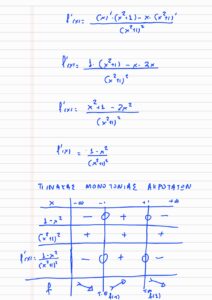 f'(x) = (x)'·(x²+1) - x·(x²+1)' / (x²+1)²
f'(x) = 1·(x²+1) - x·2x / (x²+1)²
f'(x) = x²+1-2x² / (x²+1)²
f'(x) = 1-x² / (x²+1)²
ΠΙΝΑΚΑΣ ΜΟΝΟΤΟΝΙΑΣ ΑΚΡΟΤΑΤΩΝ
x -∞ -1 1 +∞
1-x² - 0 + 0 -
(x²+1)² + + +
f'(x) = 1-x² / (x²+1)² - 0 + 0 -
f ↘ ↗ ↘